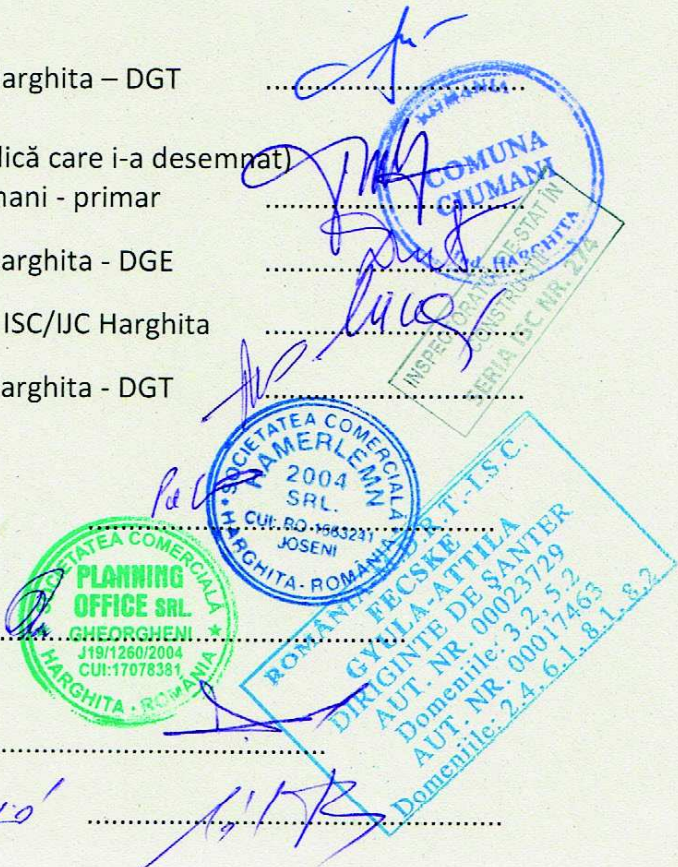 arghita – DGT
lică care i-a desemnat)
mani - primar
arghita - DGE
ISC/IJC Harghita
arghita - DGT
ROMANIA
COMUNA
CIUMANI
Jud. HARGHITA
INSPECTORATUL DE STAT ÎN
CONSTRUCŢII
SERIA ISC NR. 274
SOCIETATEA COMERCIALĂ
HAMERLEMN
2004
SRL.
CUI: RO 16632
JOSENI
HARGHITA - ROMÂNIA
SOCIETATEA COMERCIALĂ
PLANNING
OFFICE SRL.
GHEORGHENI
J19/1260/2004
CUI:17078381
HARGHITA - ROMÂNIA
ROMÂNIA T.-I.S.C.
FECSKE
GYULA-ATTILA
DIRIGINTE DE ŞANTIER
AUT. NR. 00023729
Domeniile: 3.2, 5.2
AUT. NR. 00017463
Domeniile: 2.4, 6.1, 8.1, 8.2